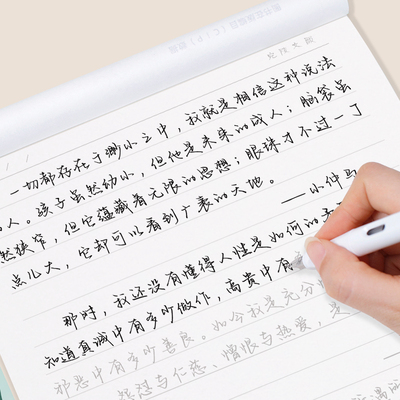 一切都存在于渺小之中，我就是相信这种说法
的人。孩子虽然幼小，但他是未来的成人；脑袋虽
然狭窄，但它蕴藏着无限的思想；眼珠才不过一丁
点儿大，它却可以看到广袤的天地。
——小仲马
那时，我还没有懂得人性是如何的矛
知道真诚中有多少做作，高贵中有
邪恶中有多少善良。如今我是充分
与仁慈、憎恨与热爱，是